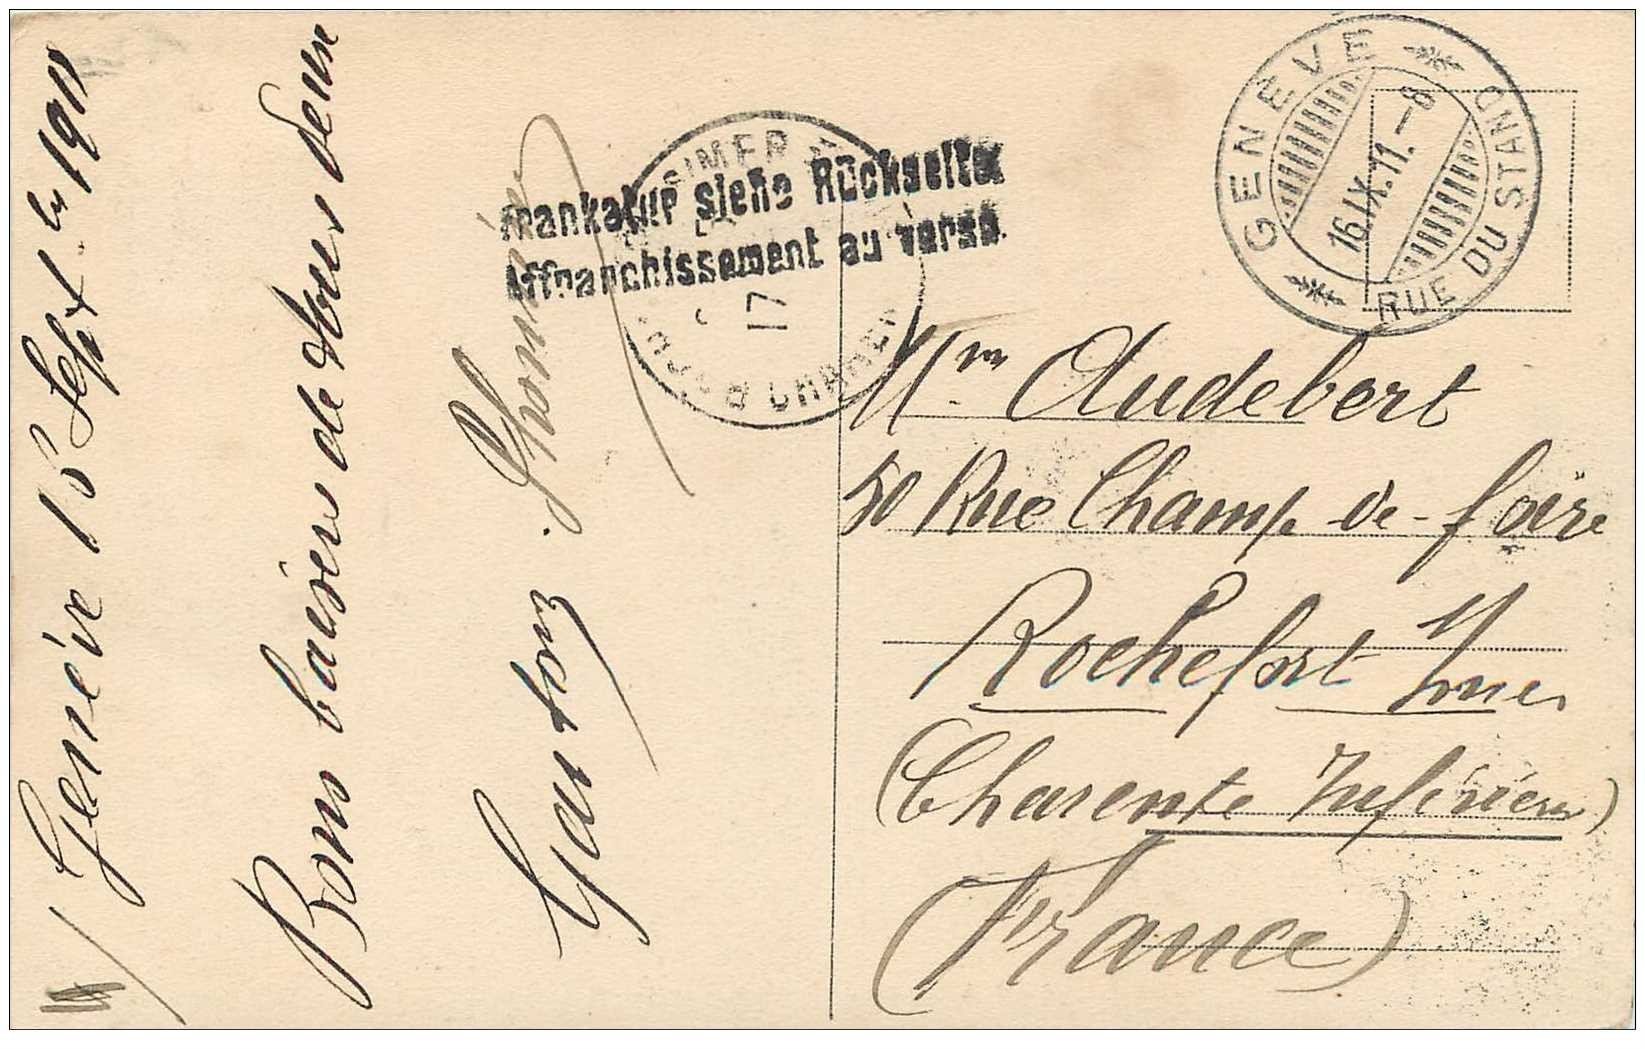 Genève 16 Sept bre 1911
Bons baisers de tous deux
Gaston
Frankatur siehe Rückseite.
Affranchissement au verso.
17
GENÈVE
16.IX.11.-8
RUE DU STAND
Mme Audebert
50 Rue Champ de foire
Rochefort s/ mer
(Charente Inférieure)
(France)